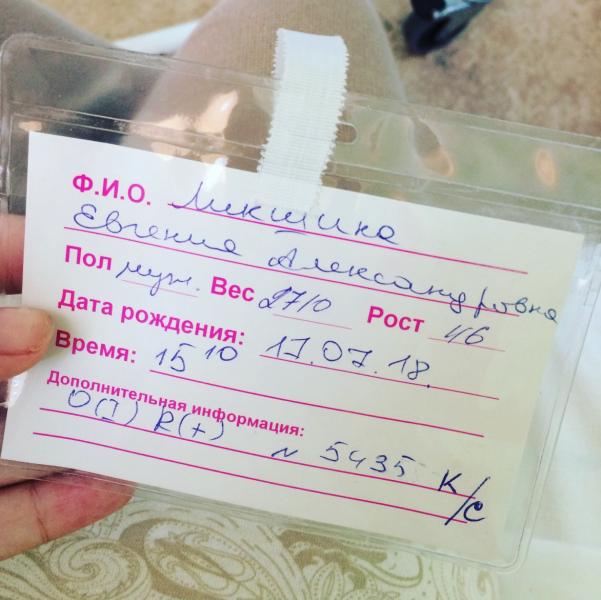 Ф.И.О. Микшина
Евгения Александровна
Пол муж. Вес 2710 Рост 46
Дата рождения: 17.07.18.
Время: 15 10
Дополнительная информация:
O(I) R(+) N 5435 К/С